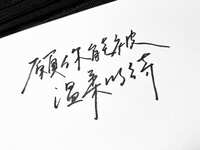 願你能被
温柔以待